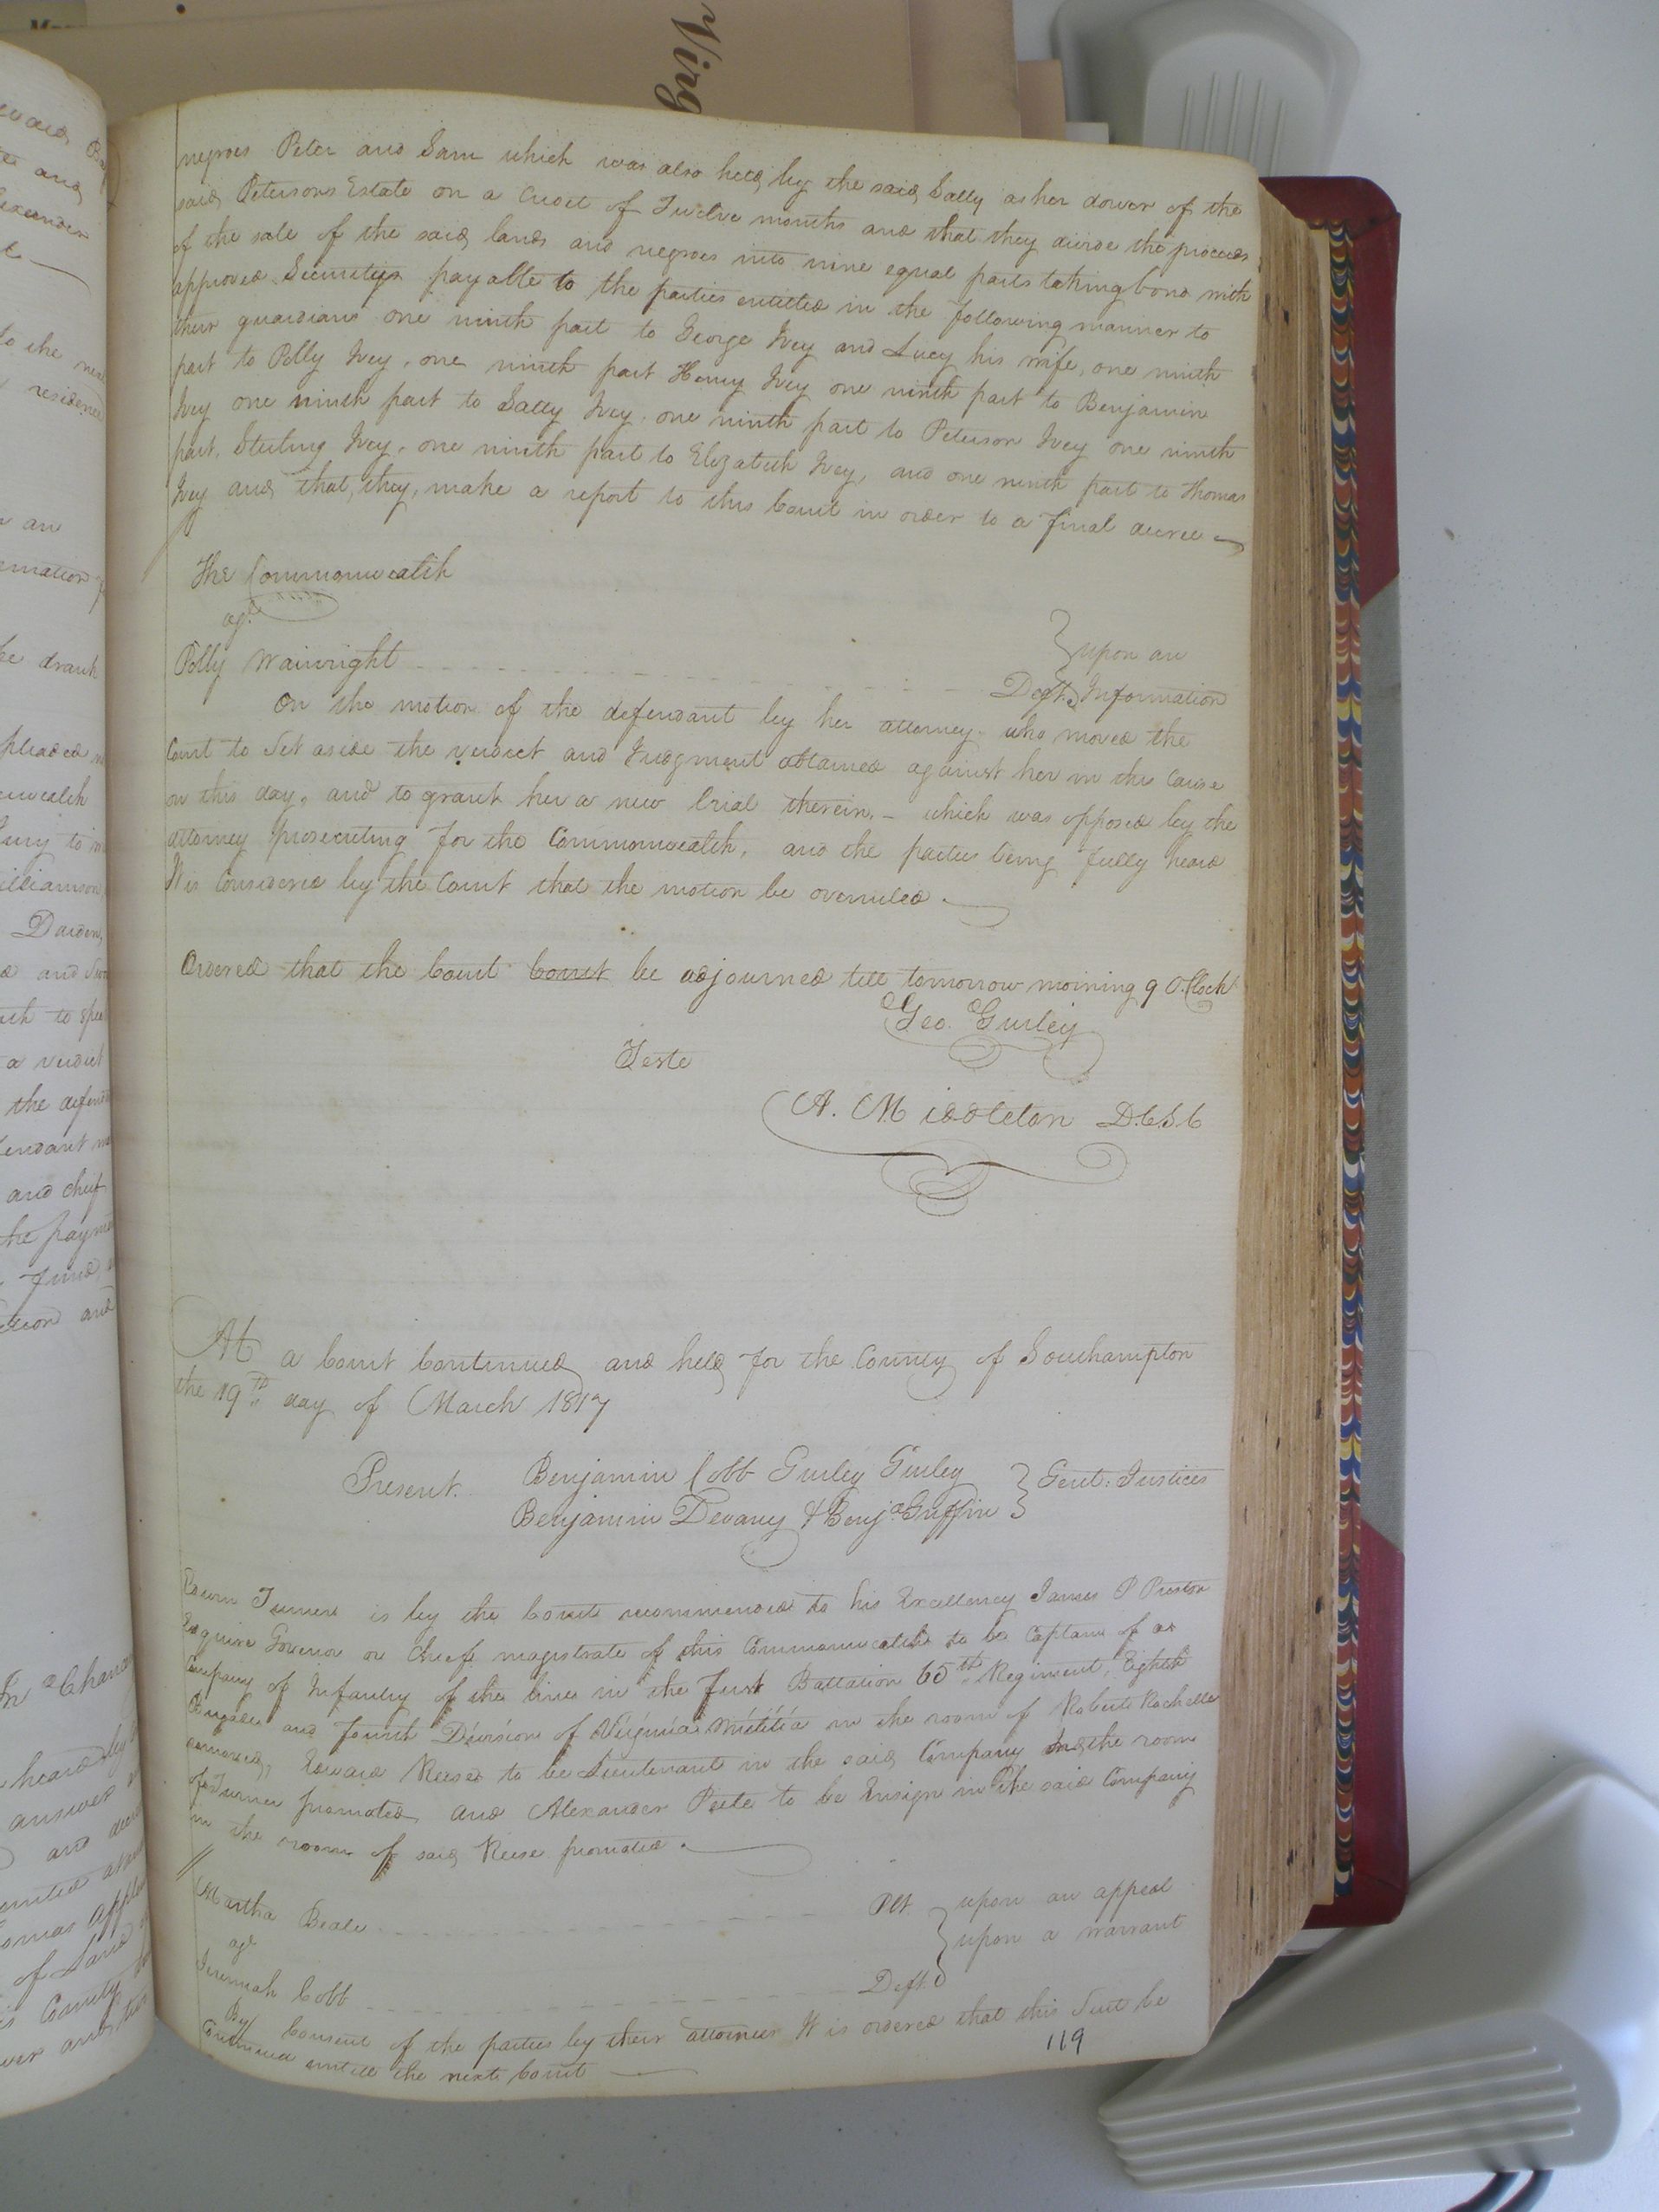 Virg
negroes Peter and Sam which was also held by the said Sally as her dower of the
said Petersons Estate on a Credit of Twelve months and that they divide the proceeds
of the sale of the said lands and negroes into nine equal parts taking bond with
approved Security payable to the parties entitled in the following manner to
their guardians one ninth part to George Ivey and Lucy his wife, one ninth
part to Polly Ivey, one ninth part Henry Ivey one ninth part to Benjamin
Ivey one ninth part to Sally Ivey, one ninth part to Peterson Ivey one ninth
part, Sterling Ivey, one ninth part to Elizabeth Ivey, and one ninth part to Thomas
Ivey and that they, make a report to this Court in order to a final decree
The Commonwealth
agt.
Polly Wainright Deft. } upon an Information
On the motion of the defendant by her attorney who moved the
Court to Set aside the verdict and Judgment obtained against her in this Cause
on this day, and to grant her a new trial therein. – which was opposed by the
attorney prosecuting for the Commonwealth, and the parties being fully heard
It is Considered by the Court that the motion be overruled.
Ordered that the Court Court be adjourned till tomorrow morning 9 O.Clock
Geo. Gurley
Teste
A. Middleton D.C.S.C
At a Court Continued and held for the County of Southampton
the 19th day of March 1817
Present. Benjamin Cobb Gurley Gurley
Benjamin Devany & Benja. Griffin } Gent: Justices
Turner is by the Court recommended to his Excellency James P Preston
Esquire Governor or Chief magistrate of this Commonwealth to be Captain of a
Company of Infantry of the line in the First Battalion 65th Regiment, Eighth
Brigade and fourth Division of Virginia Militia in the room of Robert Rochelle
removed, Edward Reese to be Lieutenant in the said Company in the room
of Turner promoted and Alexander Peete to be Ensign in the said Company
in the room of said Reese promoted.
Martha Beale Plt. } upon an appeal
agt. upon a warrant
Jeremiah Cobb Deft.
By Consent of the parties by their attornies It is ordered that this Suit be
Continued untill the next Court
119